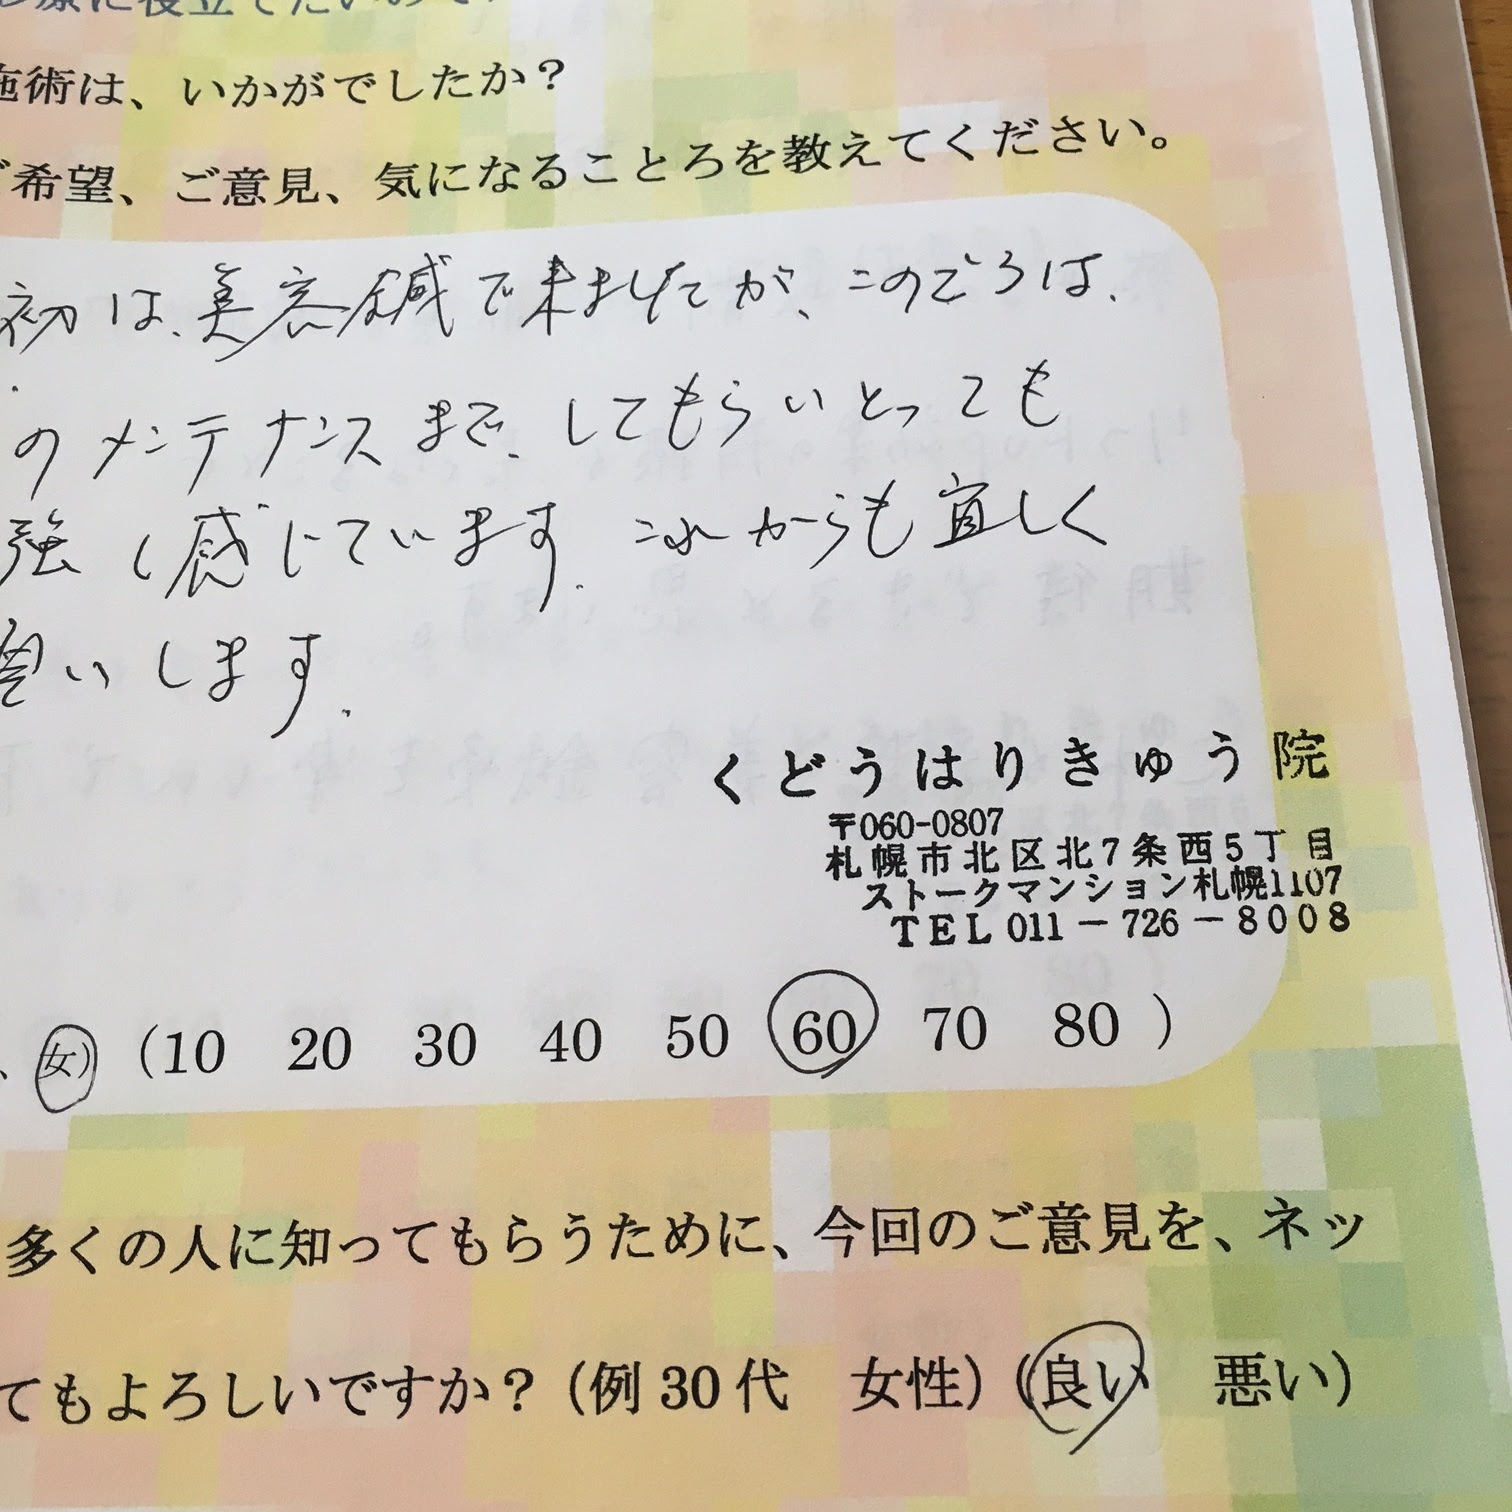 療に役立てたいので
施術は、いかがでしたか？
ご希望、ご意見、気になることろを教えてください。
初は、美容鍼で来ましたが、このごろは、
のメンテナンスまで、してもらいとっても
強く感じています。これからも宜しく
願いします。
くどうはりきゅう院
〒060-0807
札幌市北区北7条西5丁目
ストークマンション札幌1107
TEL 011－726－8008
、女）（10 20 30 40 50 60 70 80 ）
多くの人に知ってもらうために、今回のご意見を、ネッ
てもよろしいですか？（例 30 代 女性）（良い 悪い）